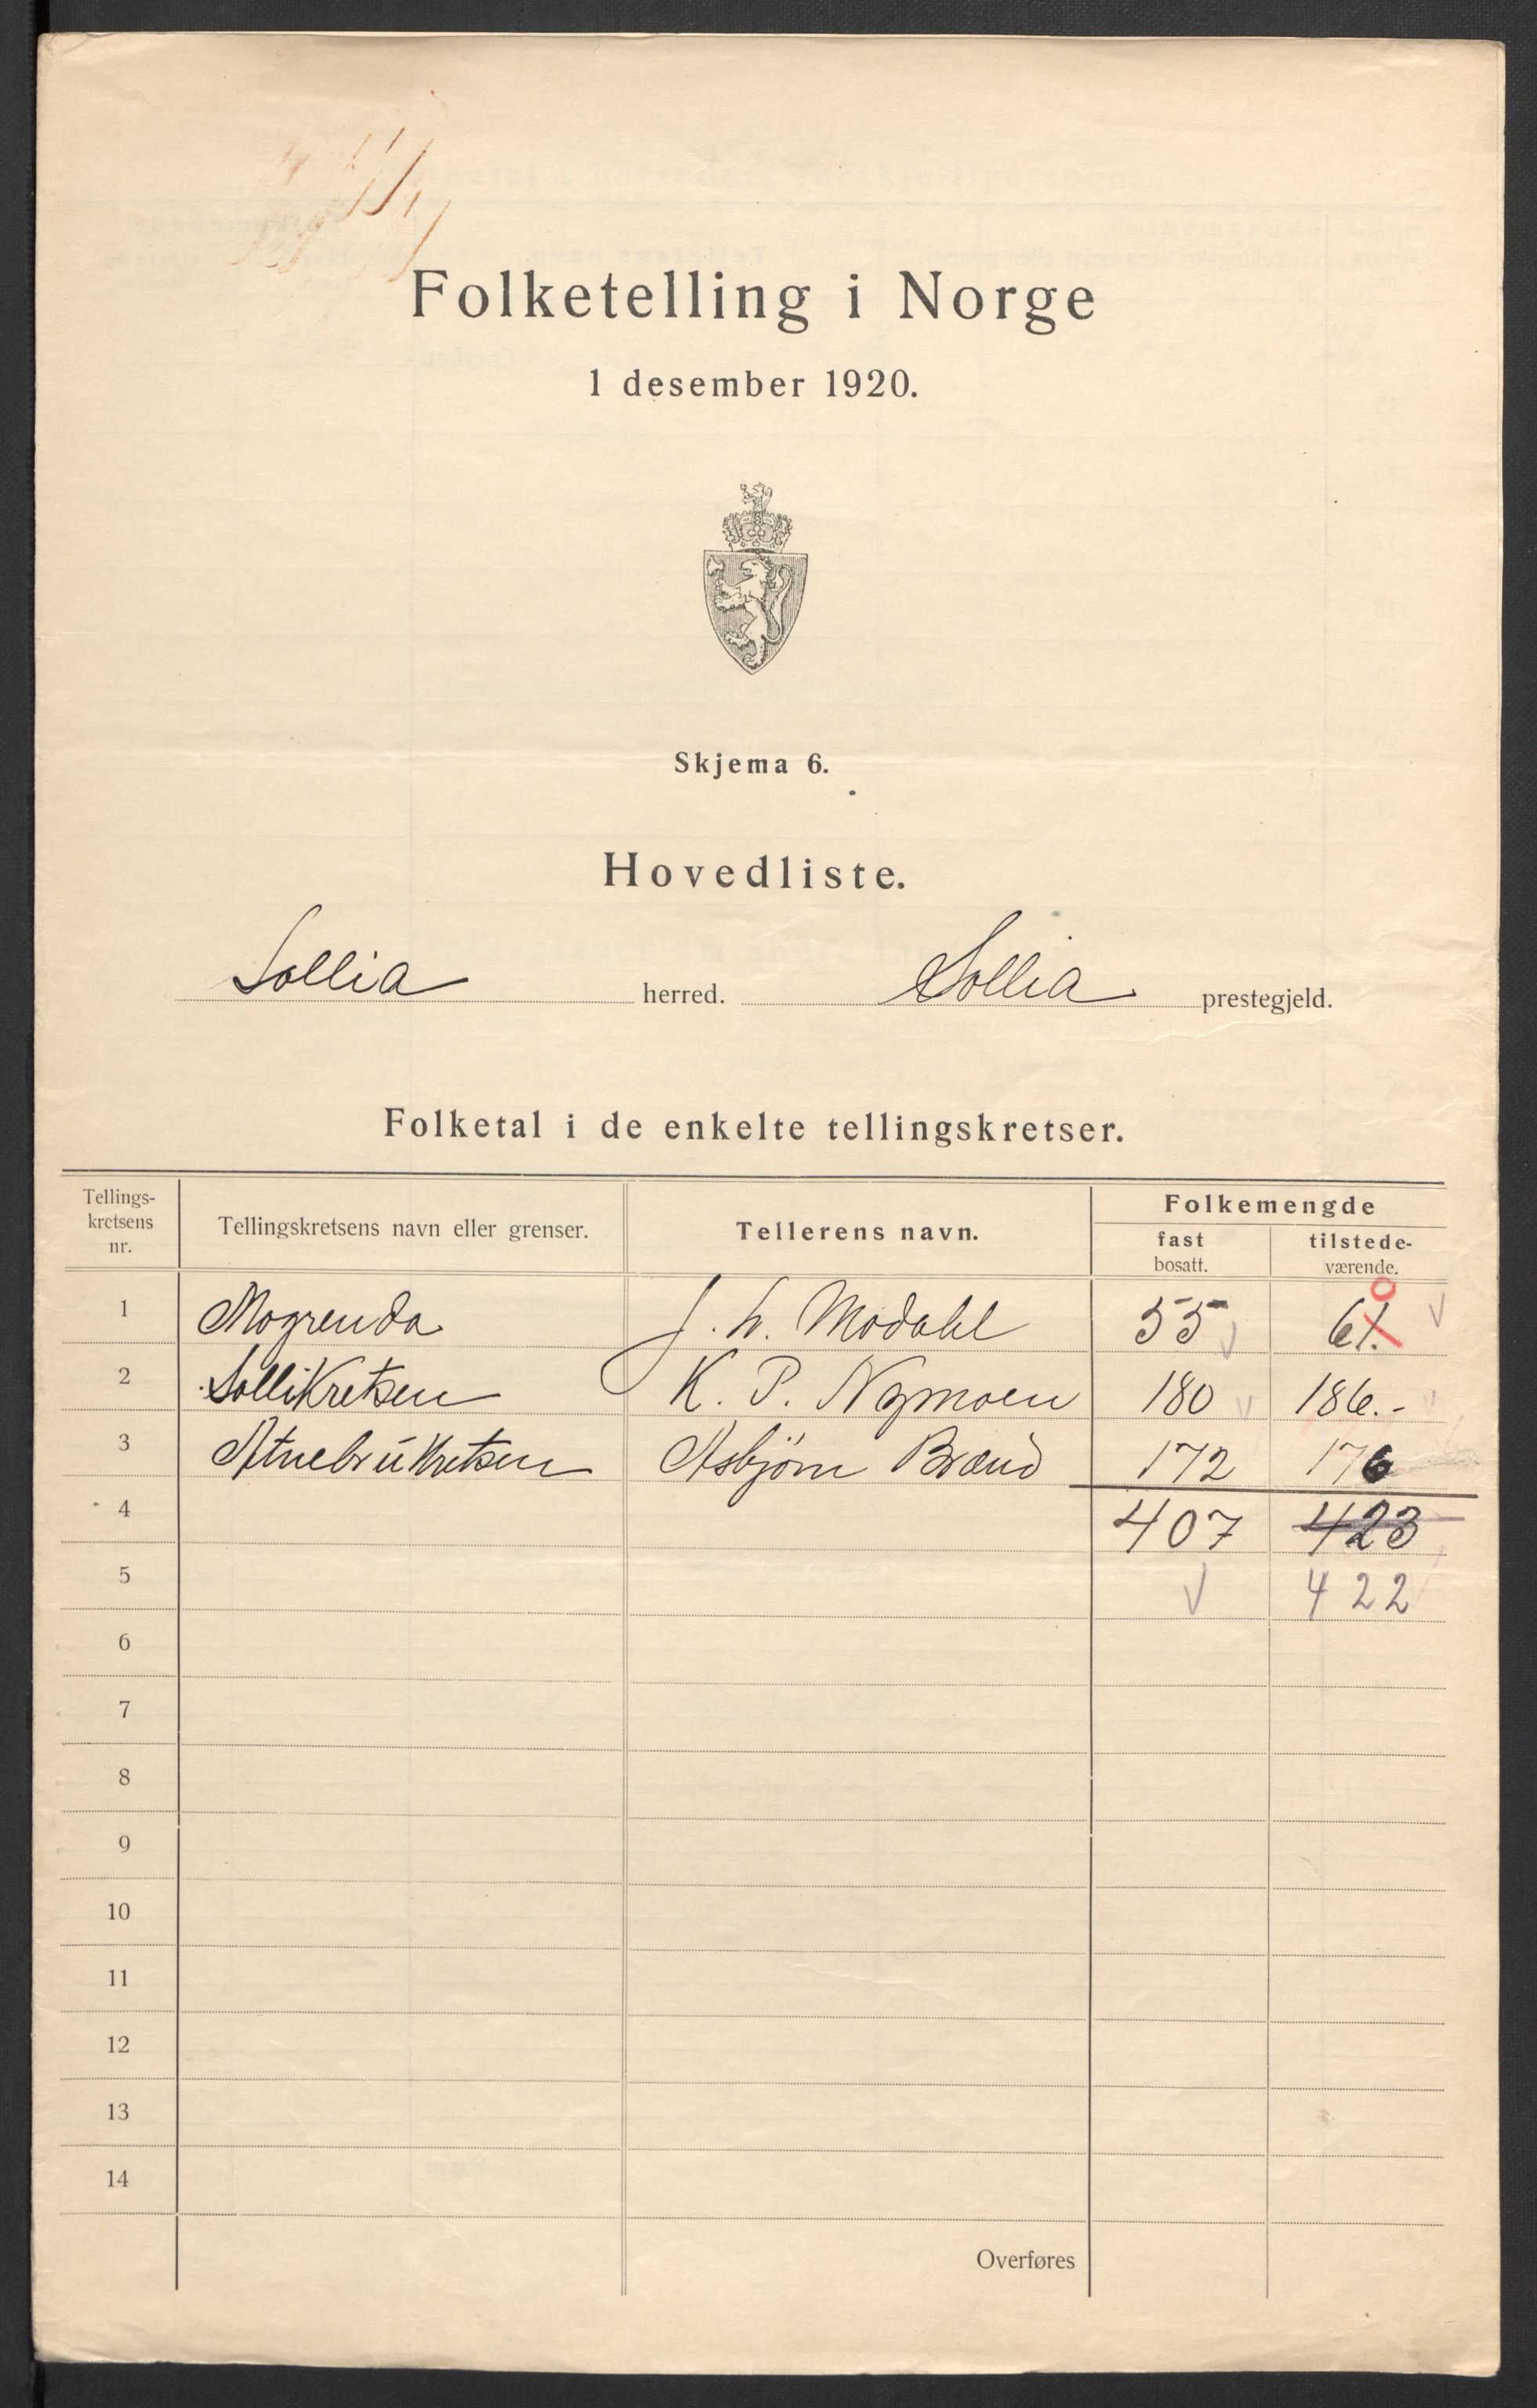 Folketelling i Norge
1 desember 1920.
Skjema 6.
Hovedliste.
Sollia herred. Sollia prestegjeld.
Folketal i de enkelte tellingskretser.
Tellings-kretsens nr. Tellingskretsens navn eller grenser. Tellerens navn. Folkemengde
fast bosatt. tilstede-værende.
1 Mogrenda J. H. Modahl 55 61. 0
2 Sollikretsen K. P. Nymoen 180 186.-
3 Atnebrukretsen Asbjørn Brænd 172 176
4 407 423
5 422
6
7
8
9
10
11
12
13
14
Overføres